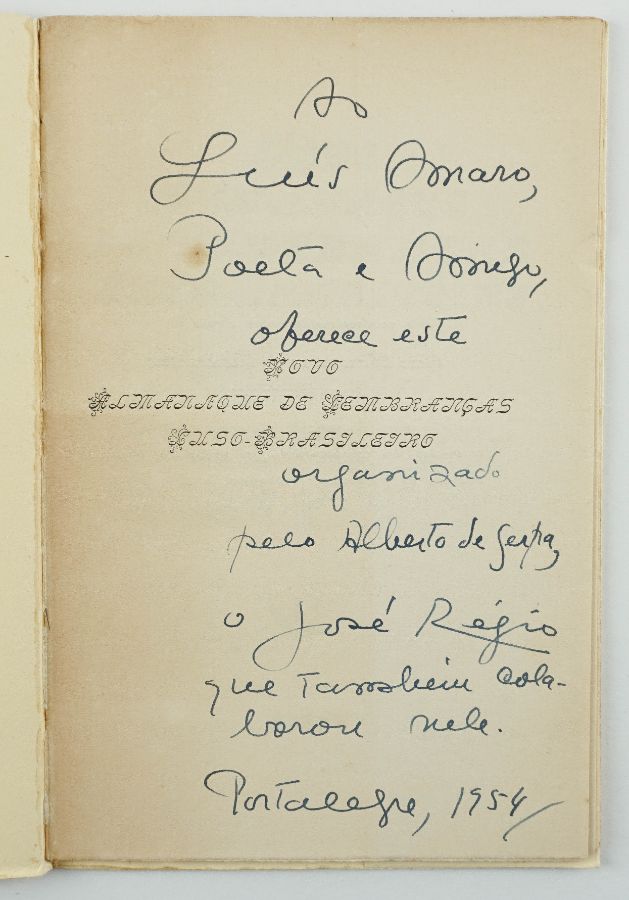 Ao
Luís Amaro,
Poeta e Amigo,
oferece este
Novo
Almanaque de Lembranças
Luso-Brasileiro
organizado
pelo Alberto de Serpa,
o José Régio
que também cola-
borou nele.
Portalegre, 1954/